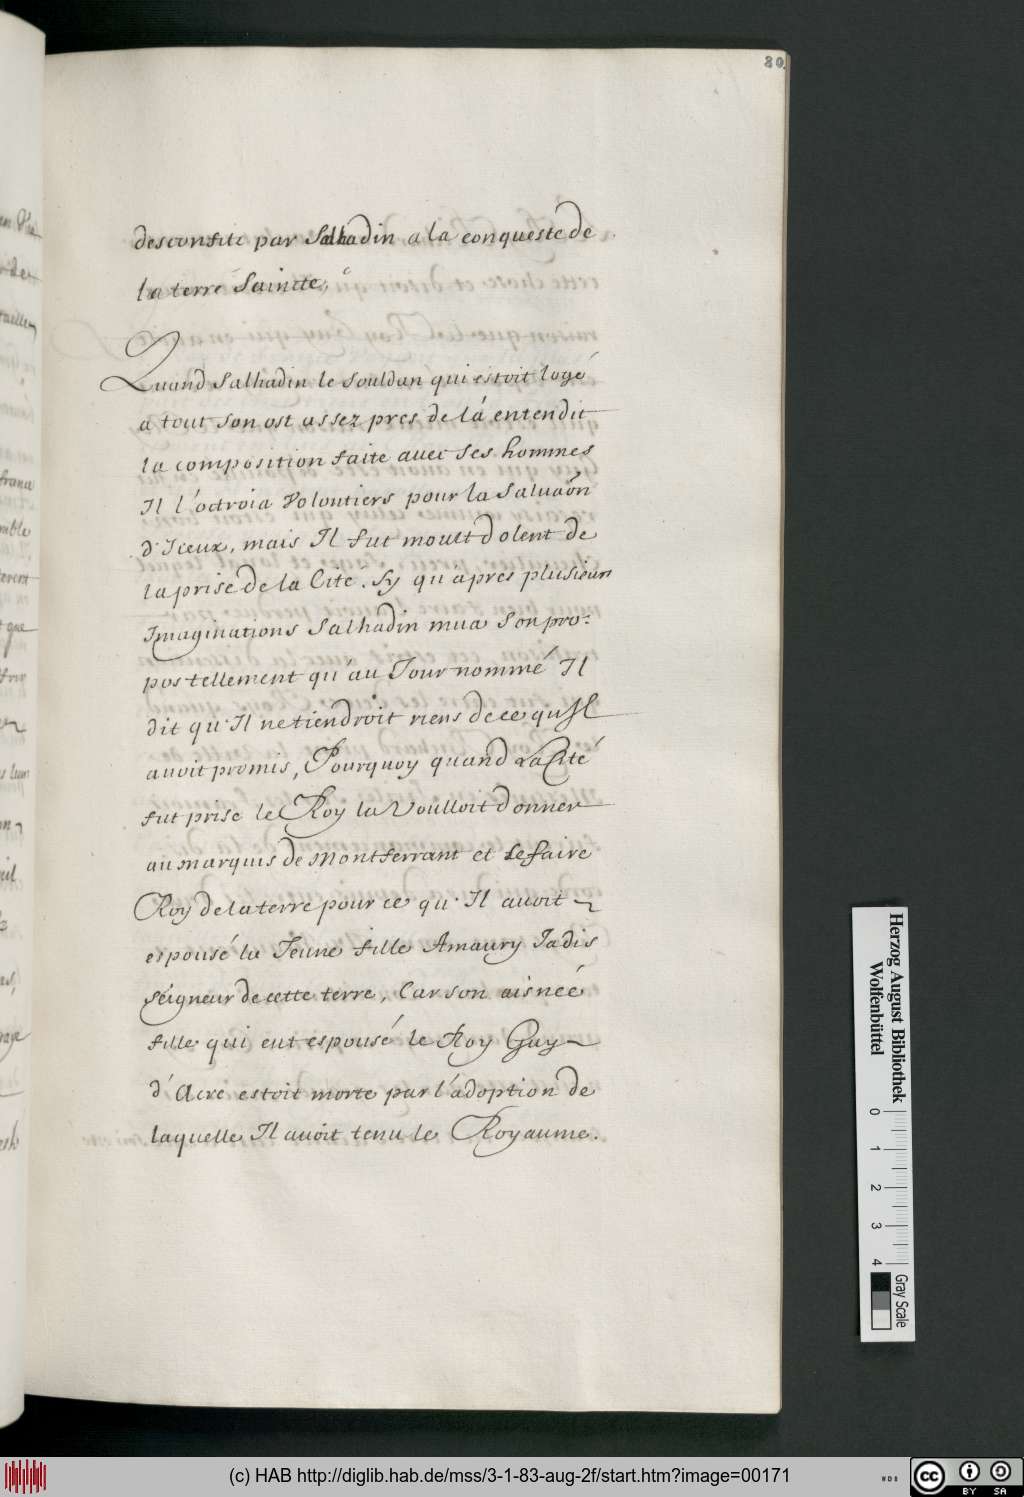 80.
desconfite par Salhadin a la conqueste de
la terre Saincte,
Quand Salhadin le souldan qui estoit logé
a tout son ost assez pres de lá entendit
la composition faite avec ses hommes
Il l'octroia Voloutiers pour la Saluaõn
d'Iceux, mais Il fut moult dolent de
la prise de la Cité. Sy qu'apres plusieurs
Imaginations Salhadin mua son pro-
pos tellement qu'au Jour nommé Il
dit qu'Il ne tiendroit riens de ce qu'Il
auoit promis, Pourquoy quand La Cité
fut prise le Roy la Voulloit donner
au marquis de Montferrant et le faire
Roy de la terre pour ce qu'Il auoit
espousé la Jeune fille Amaury Jadis
seigneur de cette terre, Car son aisneé
fille qui eut espousé le Roy Guy
d'Acre estoit morte par l'adoption de
laquelle Il auoit tenu le Royaume.
Herzog August Bibliothek
Wolfenbüttel
0 1 2 3 4
Gray Scale
(c) HAB http://diglib.hab.de/mss/3-1-83-aug-2f/start.htm?image=00171
cc BY SA